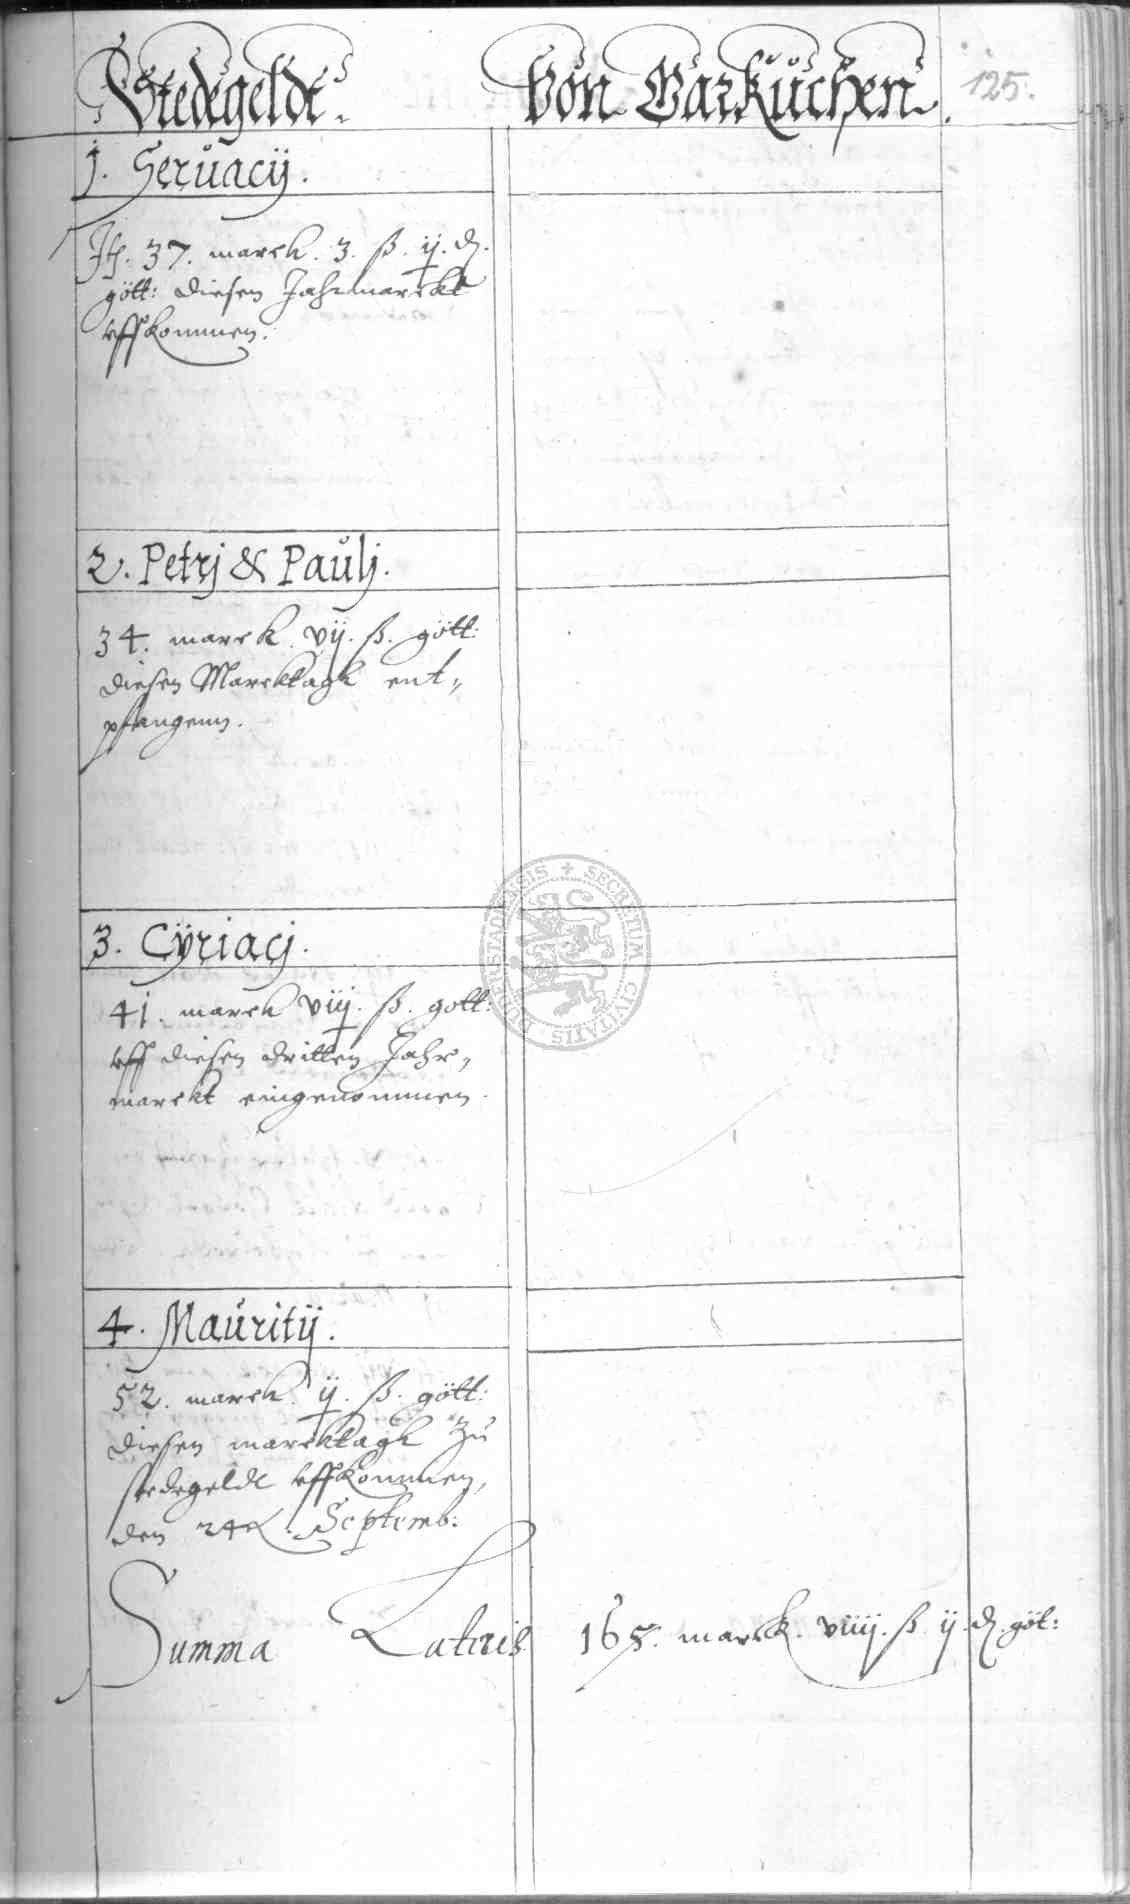 Stedegeldt. Von Garkuchen.
125.
1. Servacij.
It. 37. marck. 3. ß. ij. d.
gött: diesen Jahrmarckt
uffkommen.
2. Petrj & Paulj.
34. marck. vij. ß. gött:
diesen Marcktagk ent-
pfangenn.
3. Cÿriacj.
41. marck viij. ß. gott:
uff diesen dritten Jahr-
marckt eingenommen.
4. Mauritij.
52. marck. ij. ß. gött:
diesen marcktagk Zu
stedegeldt uffkommen,
den 24. Septemb:
Summa Lateris 165. marck. viiij. ß. ij. d. göt:
SECRETUM CIVITATIS DUDERSTADIENSIS